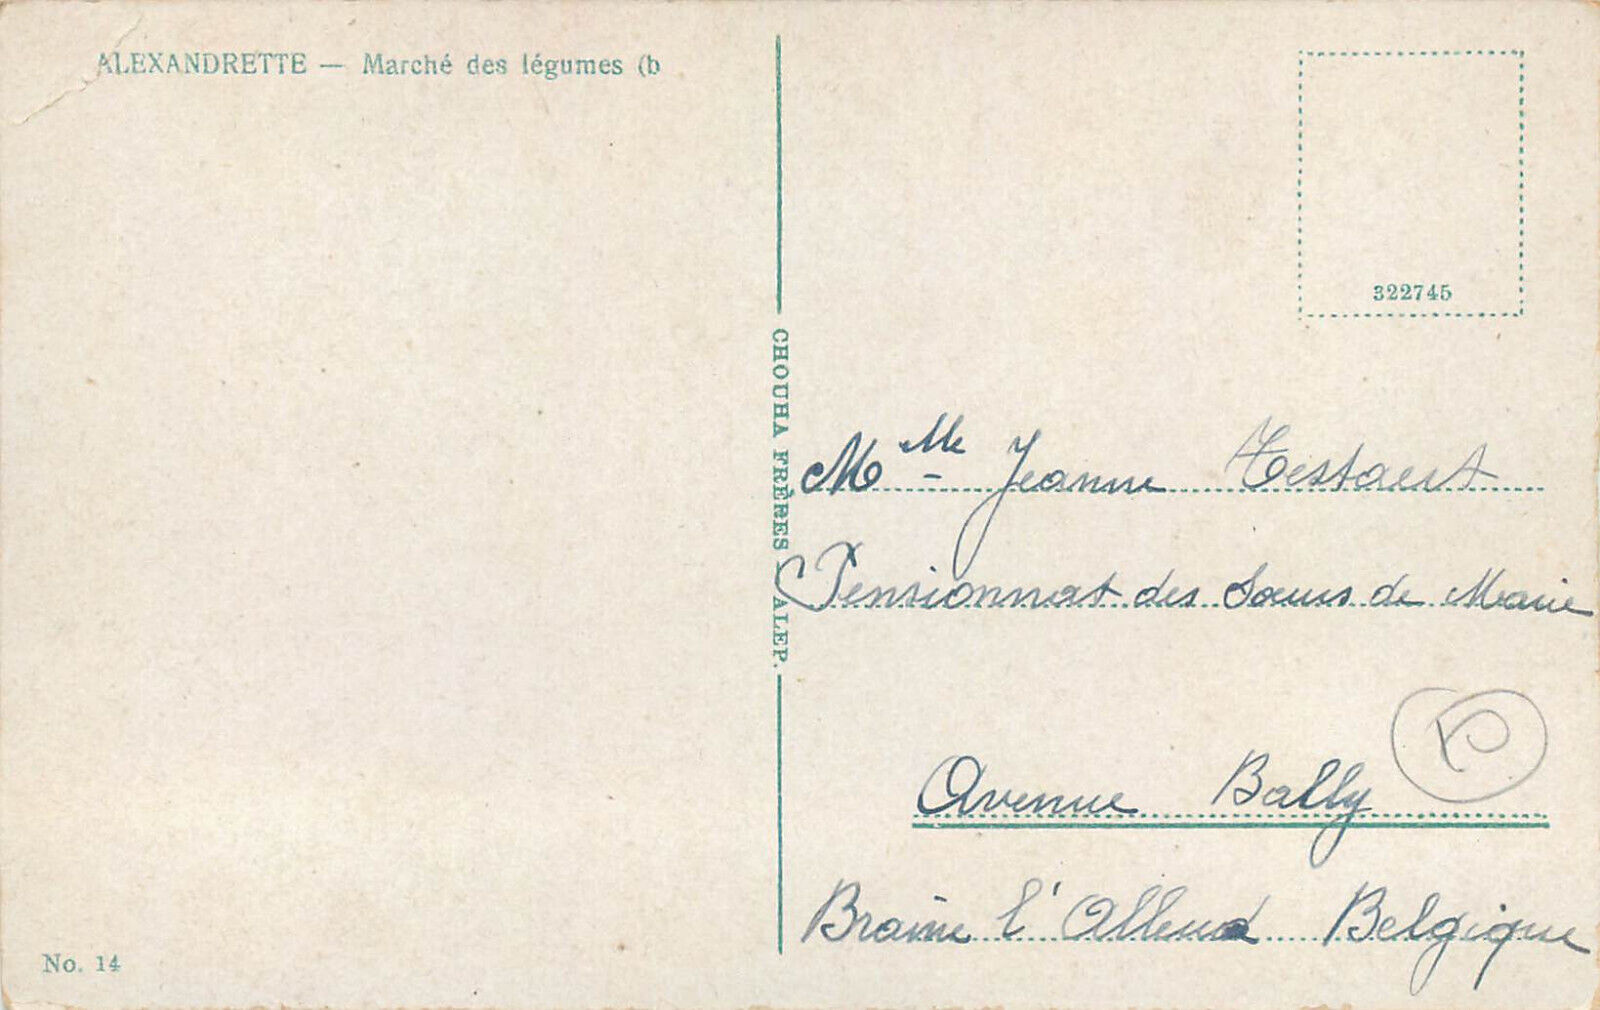 ALEXANDRETTE — Marché des légumes (b
322745
CHOUHA FRÈRES ALEP.
Mlle Jeanne Testaert
Pensionnat des Sœurs de Marie
Avenue Bally
Braine l'Alleud Belgique
No. 14